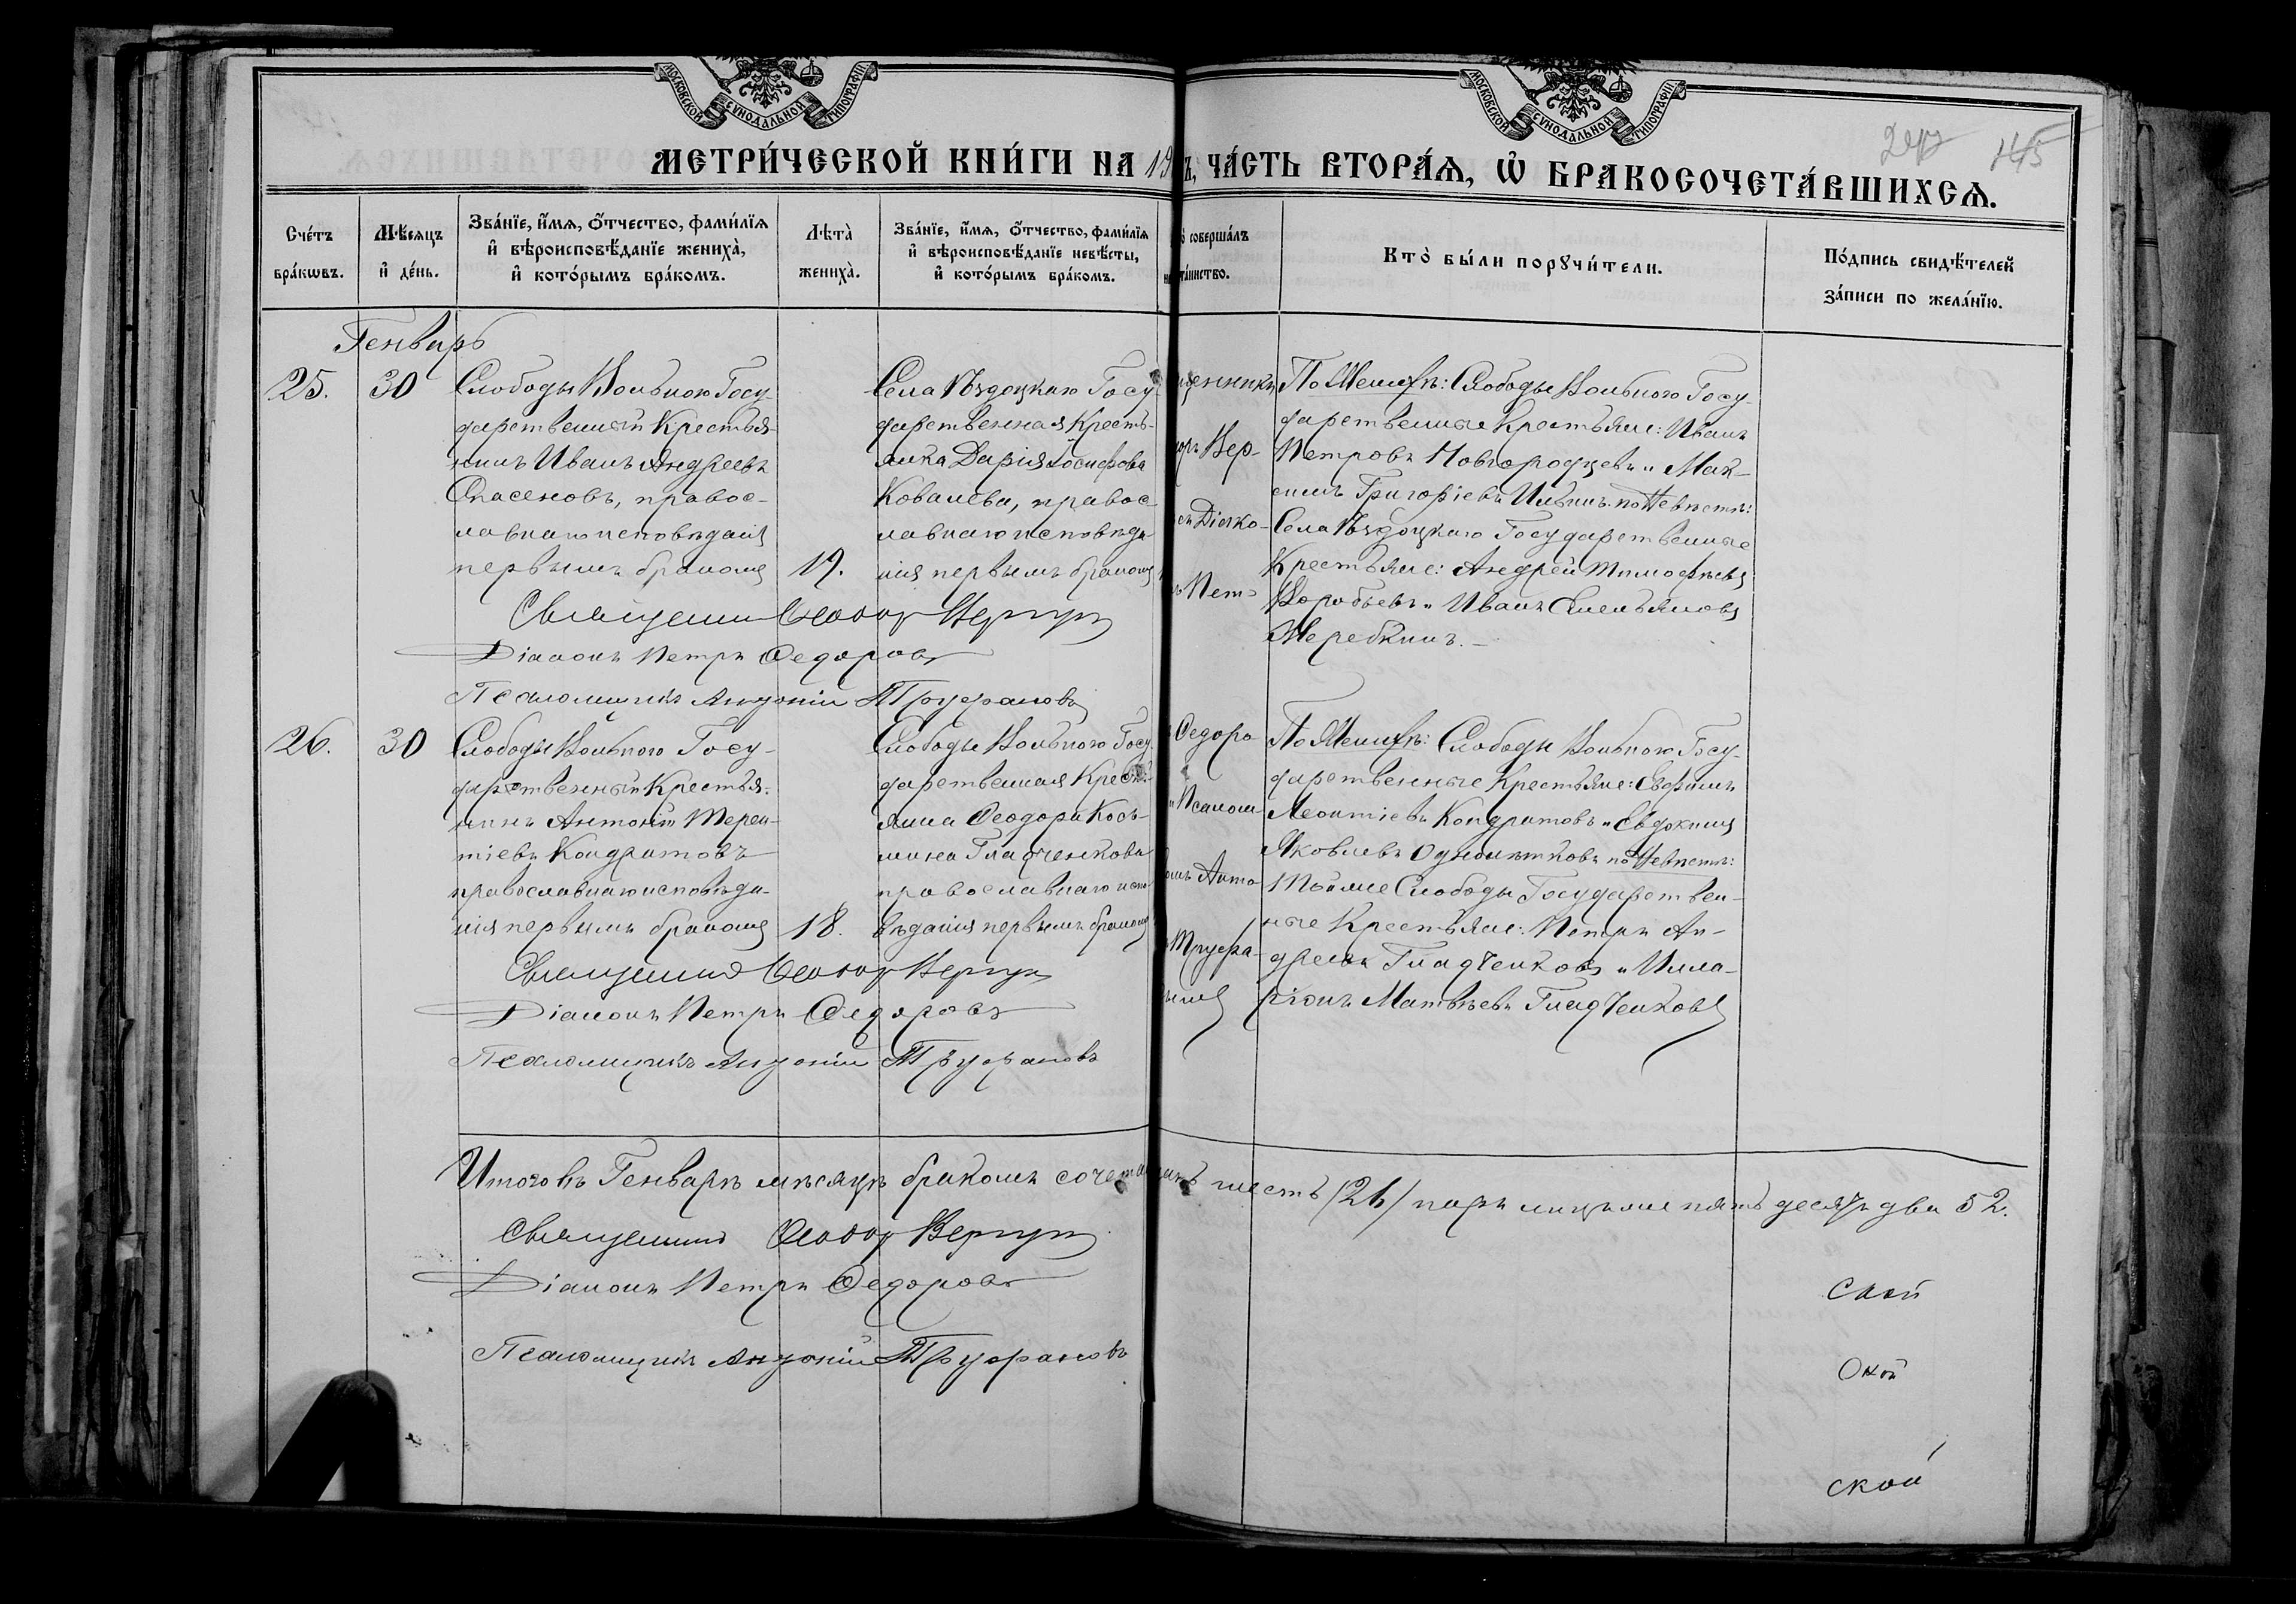 МОСКОВСКОЙ СУНОДАЛЬНОЙ ТИПОГРАФІИ
МОСКОВСКОЙ СУНОДАЛЬНОЙ ТИПОГРАФІИ
145
МЕТРИ́ЧЕСКОЙ КНИ́ГИ НА 19
Ъ, ЧА́СТЬ ВТОРА́Ѧ, Ѡ҆ БРАКОСОЧЕТА́ВШИХСѦ.
Сче́тъ бра́кѡвъ.
Мѣ́сяцъ и҆ де́нь.
Зва́нїе, и҆́мѧ, ѻ҆́тчество, фами́лїѧ
и҆ вѣроисповѣ́данїе жениха̀,
и҆ кото́рымъ бра́комъ.
Лѣта̀
жениха̀.
Зва́нїе, и҆́мѧ, ѻ҆́тчество, фами́лїѧ
и҆ вѣроисповѣ́данїе невѣ́сты,
и҆ кото́рымъ бра́комъ.
о̀ соверша́лъ
та́инство.
Кто̀ бы́ли порꙋчи́тели.
По́дпись свидѣ́телей
за́писи по жела́нїю.
Генварь
25.
30
Слободы Вольного Госу-
дарственный Крестья-
нинъ Иванъ Андреевъ
Спасеновъ, правос-
лавнаго исповѣданія
первымъ бракомъ
19.
Села Госу-
дарственная Кресть-
янка Дарія Іосифова
Ковалева, правос-
лавнаго исповѣда-
нія первымъ бракомъ
щенникъ
Вер-
Діяко-
Пет-
По Женихѣ: Слободы Вольного Госу-
дарственные Крестьяне: Иванъ
Петровъ Новгородцевъ и Мак-
симъ Григоріевъ Ильинъ. по Невѣстѣ:
Села Государственные
Крестьяне: Андрей Тимофѣевъ
Воробьевъ и Иванъ Емельяновъ
Жеребкинъ.
Священникъ Ѳеодоръ Вергунъ
Діаконъ Петръ Ѳедоровъ
Псаломщикъ Антоній Труфановъ
26.
30
Слободы Вольного Госу-
дарственный Крестья-
нинъ Антоній Терен-
тіевъ Кондратовъ
православнаго исповѣда-
нія первымъ бракомъ
18.
Слободы Вольного Госу-
дарственная Кресть-
янка Ѳеодора Кось-
мина Гладченкова
православнаго испо-
вѣданія первымъ бракомъ
Ѳедоро
и Псалом
Анто-
Труфа-
По Женихѣ: Слободы Вольного Госу-
дарственные Крестьяне: Евфимъ
Леонтіевъ Кондратовъ и Евдокимъ
Яковлевъ по Невѣстѣ:
Той же Слободы Государствен-
ные Крестьяне: Петръ Ан-
дреевъ Гладченковъ и Илла-
ріонъ Матвѣевъ Гладченковъ
Священникъ Ѳеодоръ Вергунъ
Діаконъ Петръ Ѳедоровъ
Псаломщикъ Антоній Труфановъ
Итого въ Генварѣ мѣсяцѣ бракомъ сочета шесть (26) паръ лицами пятьдесятъ два 52.
Священникъ Ѳеодоръ Вергунъ
Діаконъ Петръ Ѳедоровъ
Псаломщикъ Антоній Труфановъ
ской